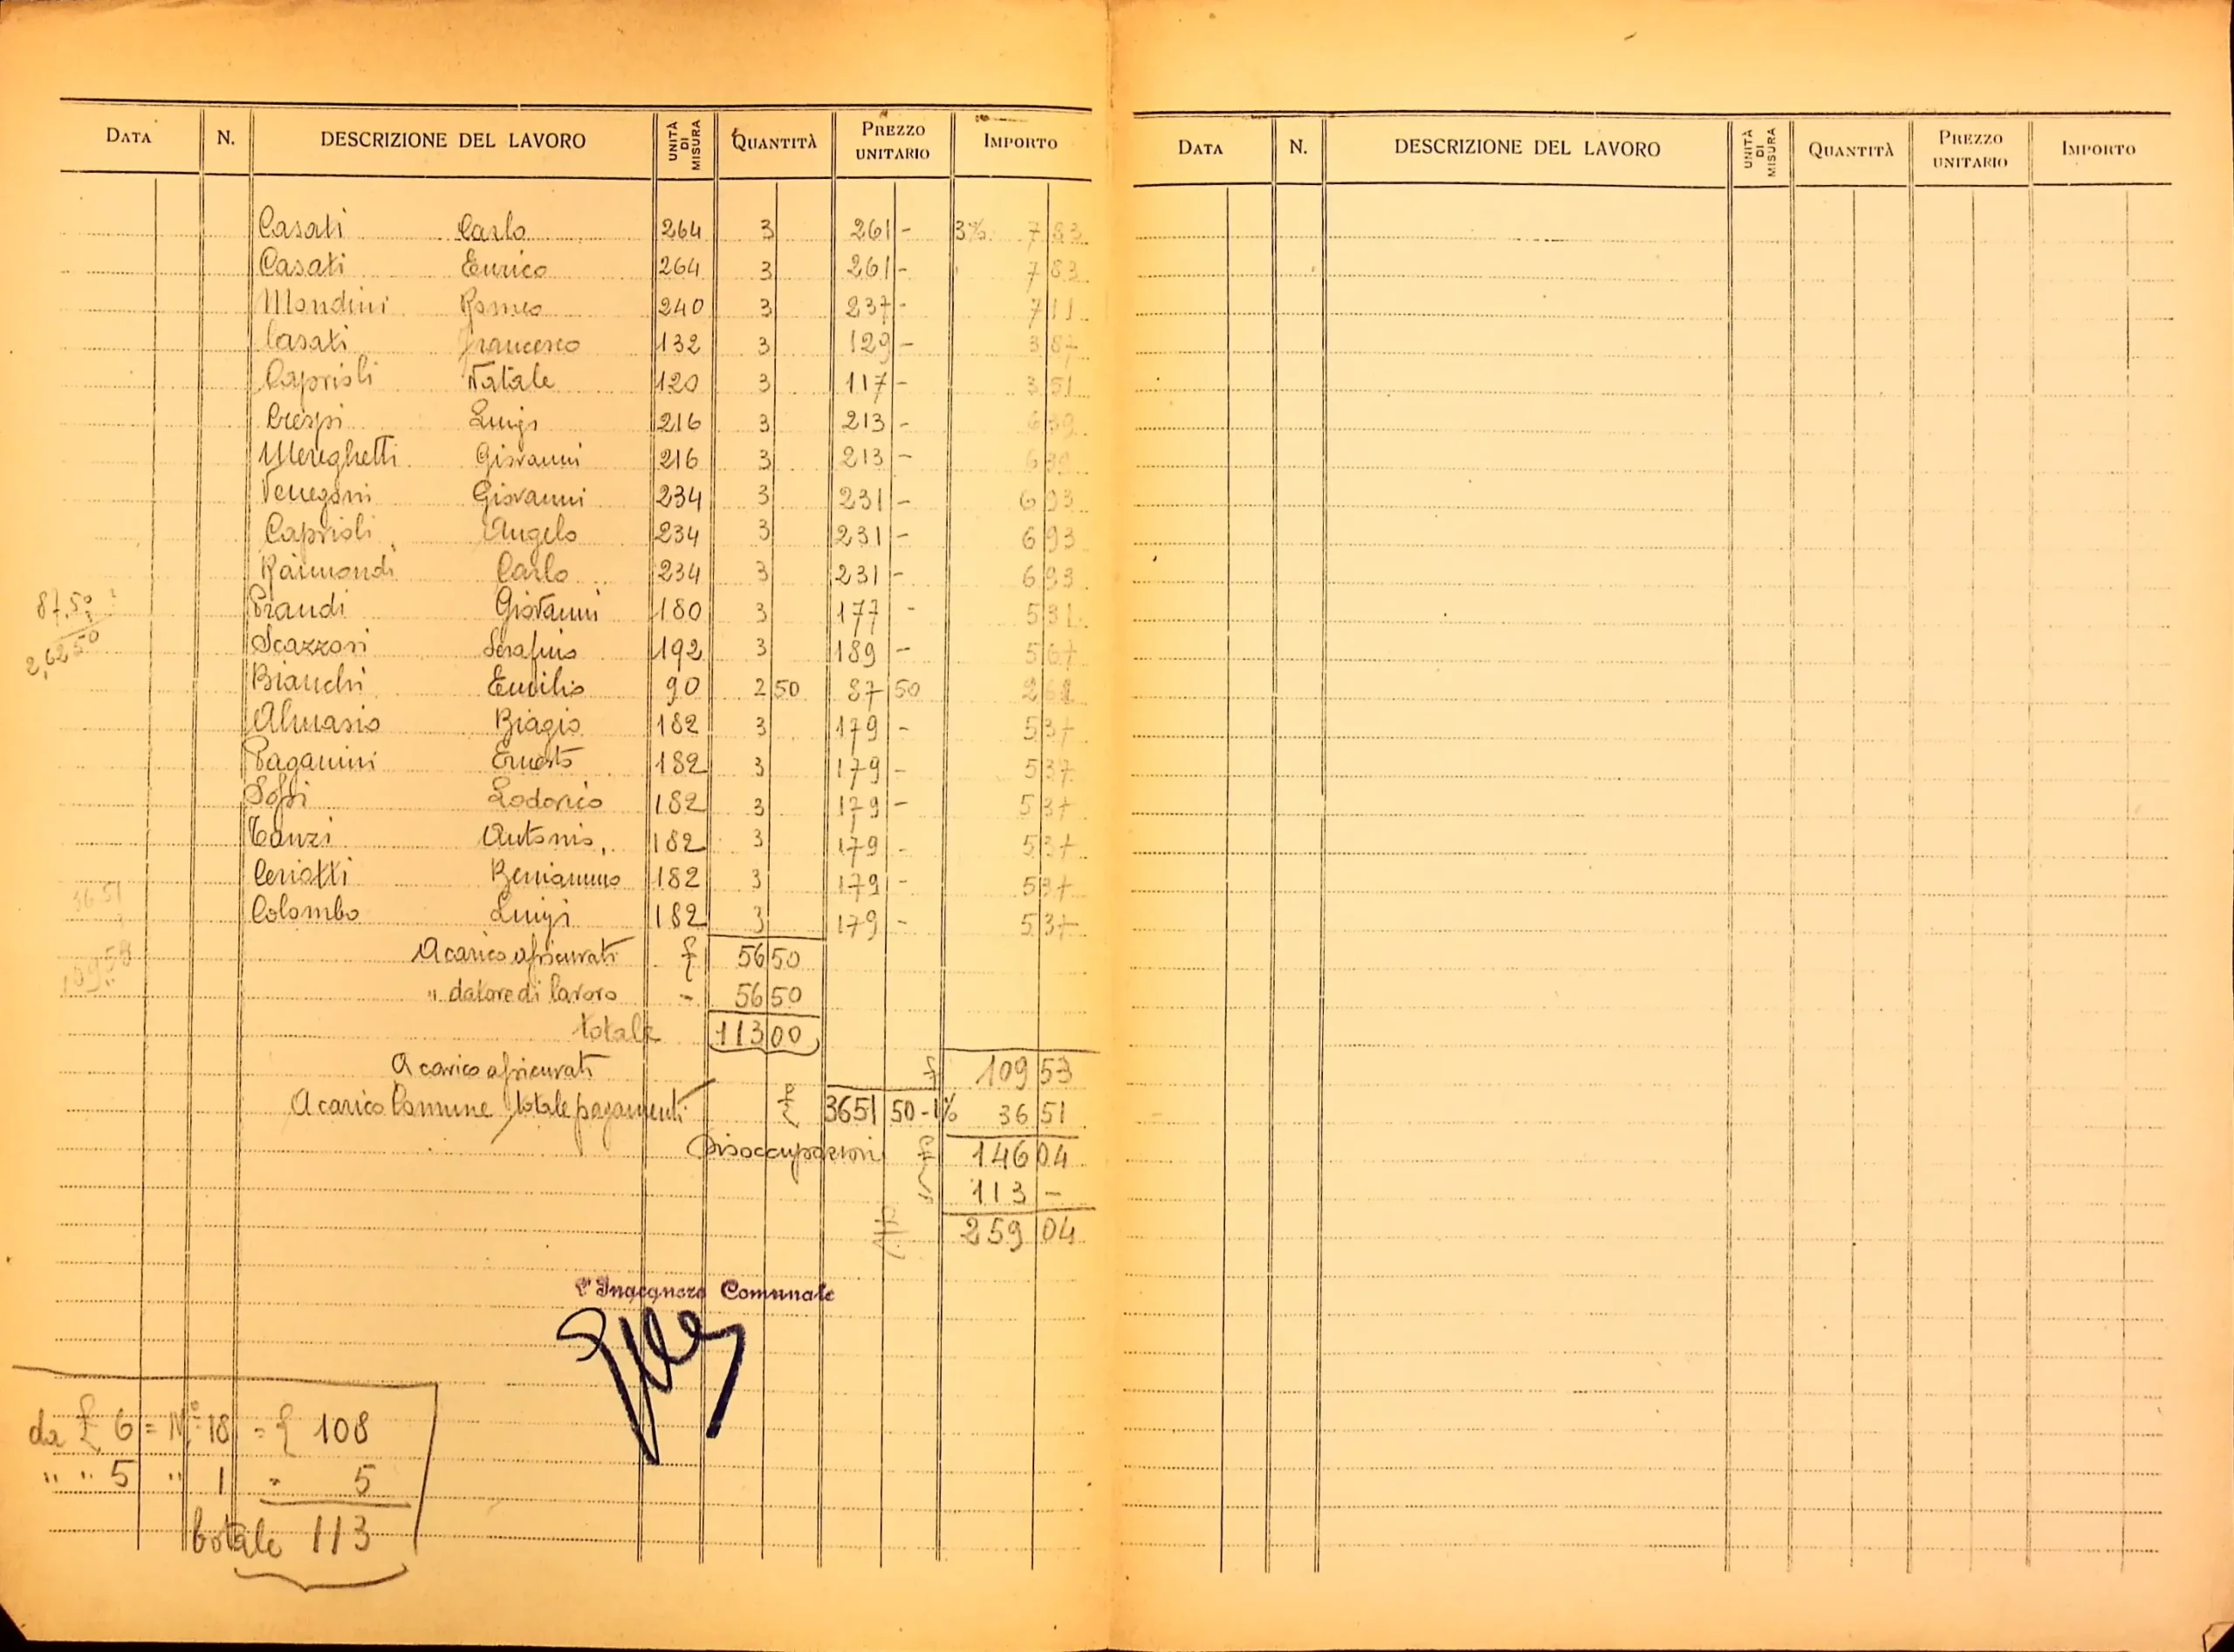 DATA N. DESCRIZIONE DEL LAVORO UNITÀ DI MISURA QUANTITÀ PREZZO UNITARIO IMPORTO
Casati Carlo 264 3 261 - 3% 7 83
Casati Enrico 264 3 261 - 7 83
Mondini Romeo 240 3 237 - 7 11
Casati Francesco 132 3 129 - 3 87
Caprioli Natale 120 3 117 - 3 51
Crespi Luigi 216 3 213 - 6 39
Mereghetti Giovanni 216 3 213 - 6 39
Venegoni Giovanni 234 3 231 - 6 93
Caprioli Angelo 234 3 231 - 6 93
Raimondi Carlo 234 3 231 - 6 93
87.50
3
Prandi Giovanni 180 3 177 - 5 31
2,6250
Scazzosi Serafino 192 3 189 - 5 67
Bianchi Emilio 90 2 50 87 50 2 62
Almasio Biagio 182 3 179 - 5 37
Paganini Ernesto 182 3 179 - 5 37
Lodovico 182 3 179 - 5 37
Tanzi Antonio 182 3 179 - 5 37
Ceriotti Beniamino 182 3 179 - 5 37
36 51
Colombo Luigi 182 3 179 - 5 37
A carico assicurati £ 56 50
109 53
" datore di lavoro - 56 50
totale 113 00
A carico assicurati £ 109 53
A carico Comune / totale pagamenti £ 3651 50 - 1% 36 51
Disoccupazioni £ 146 04
113 -
259 04
L'Ingegnere Comunale
da £ 6 = N.° 18 = £ 108
" " 5 " 1 = 5
totale 113
DATA N. DESCRIZIONE DEL LAVORO UNITÀ DI MISURA QUANTITÀ PREZZO UNITARIO IMPORTO